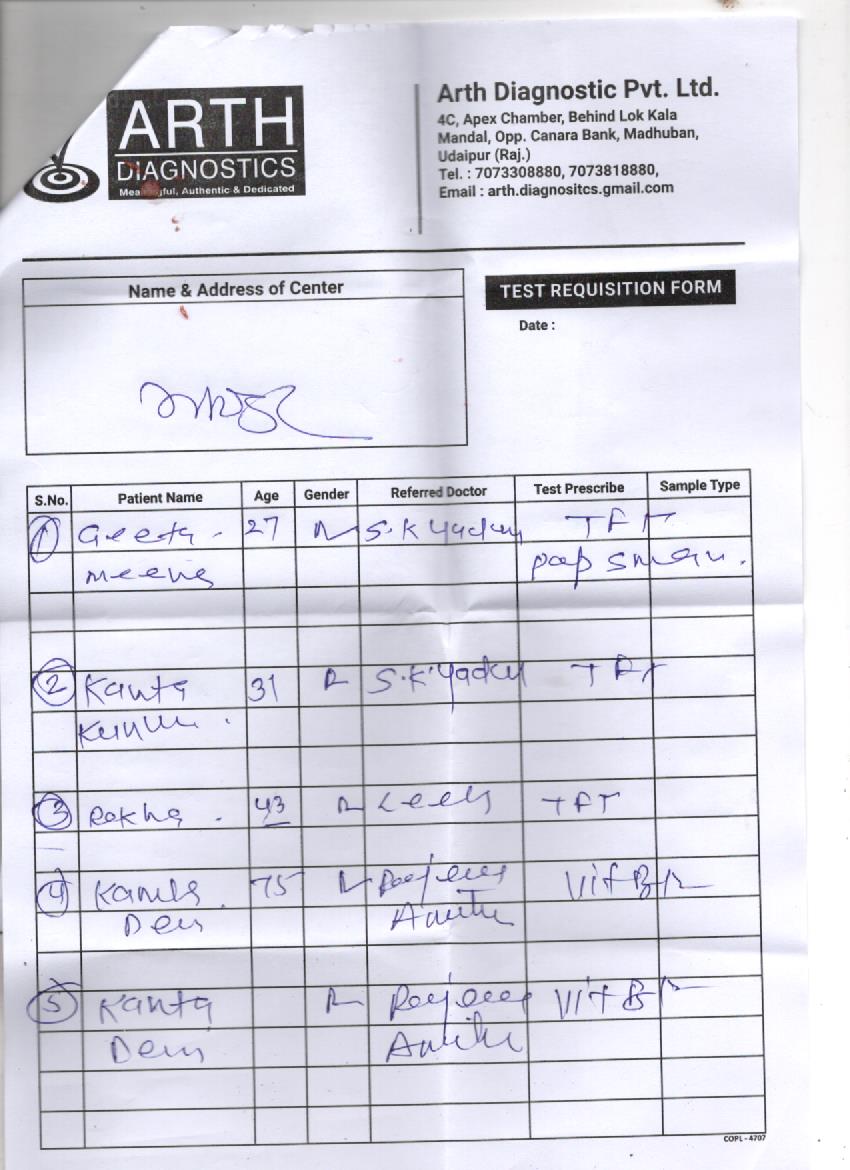 ARTH
DIAGNOSTICS
Authentic & Dedicated
Arth Diagnostic Pvt. Ltd.
4C, Apex Chamber, Behind Lok Kala
Mandal, Opp. Canara Bank, Madhuban,
Udaipur (Raj.)
Tel. : 7073308880, 7073818880,
Email : arth.diagnositcs.gmail.com
Name & Address of Center
TEST REQUISITION FORM
Date :
S.No. Patient Name Age Gender Referred Doctor Test Prescribe Sample Type
1 Geeta 27 S.K Yadav TFT
meena pap smear.
2 Kanta 31 S.K Yadav TFT
3 Rekha 43 TFT
4 Kamla 75 Vit B12
Devi
5 Kanta Vit B12
Devi
COPL - 4707